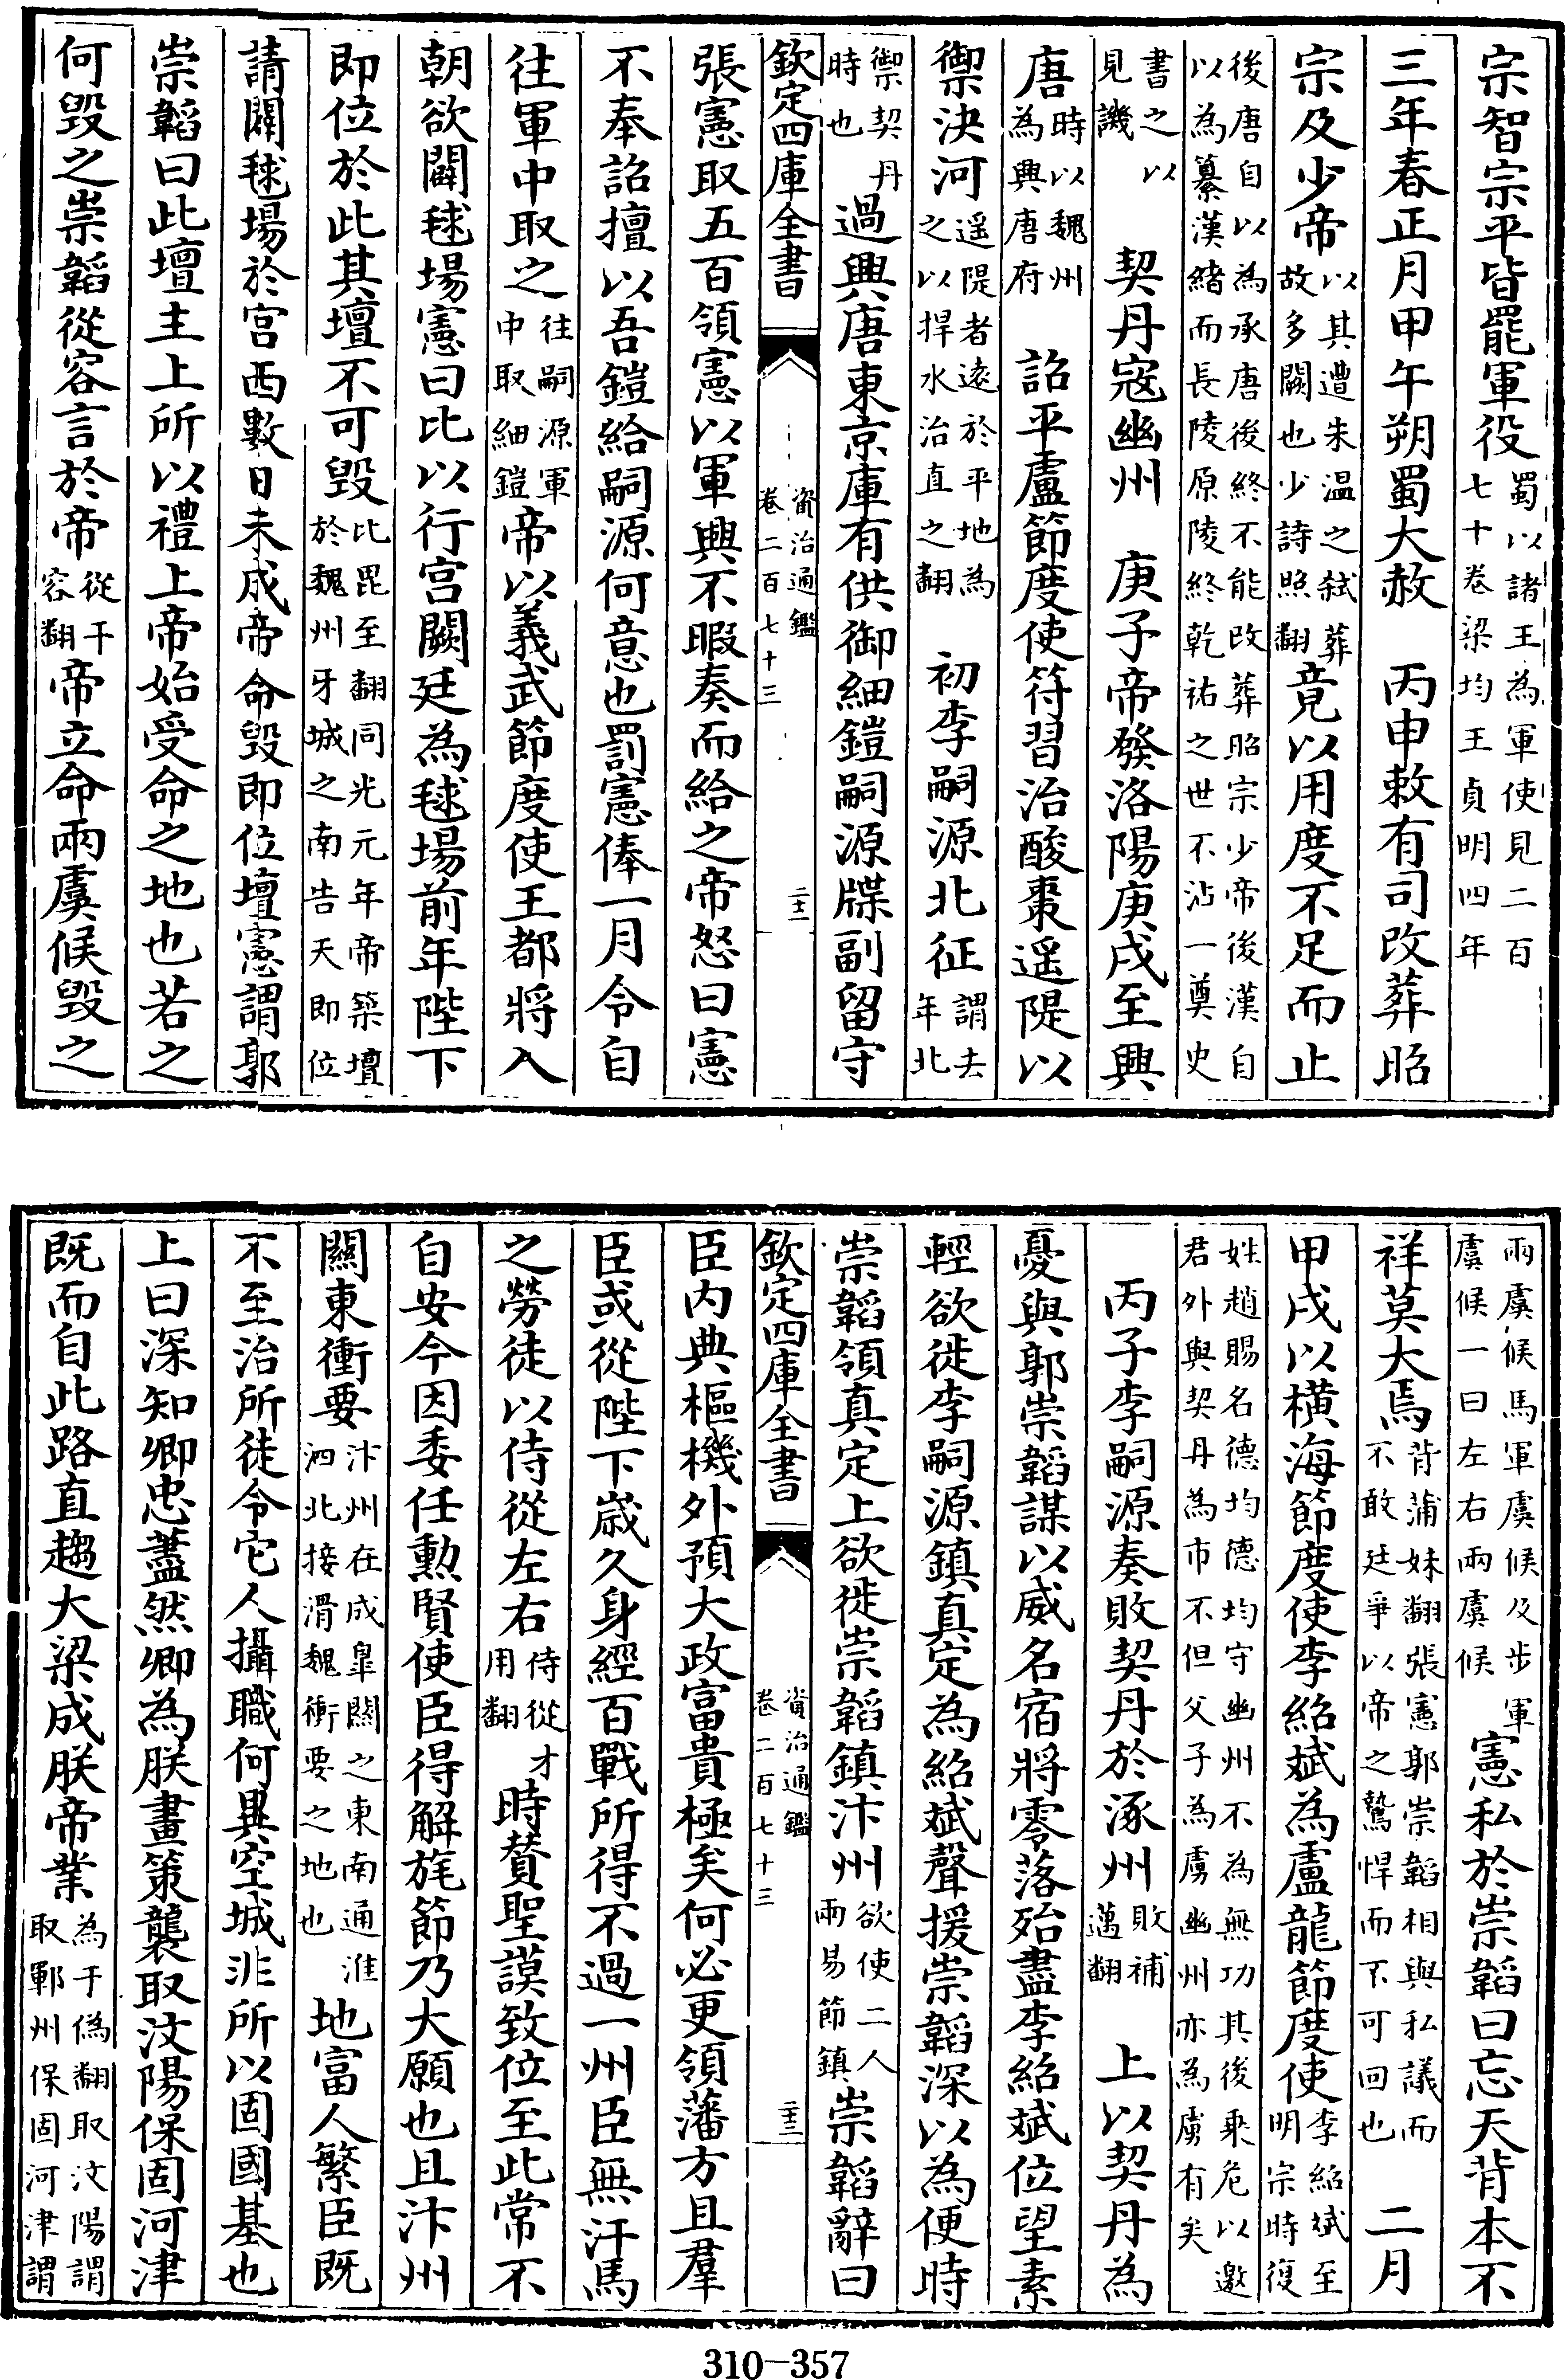 宗智宗平皆罷軍役蜀以諸王為軍使見二百七十卷梁均王貞明四年
三年春正月甲午朔蜀大赦　丙申敕有司改葬昭
宗及少帝以其遭朱温之弒葬故多闕也少詩照翻竟以用度不足而止
後唐自以為承唐後終不能改葬昭宗少帝後漢自以為纂漢緒而長陵原陵終乾祐之世不沾一奠史
書之以見譏　契丹寇幽州　庚子帝發洛陽庚戌至興
唐時以魏州為興唐府　詔平盧節度使符習治酸棗遥隄以
禦決河遥隄者遠於平地為之以捍水治直之翻　初李嗣源北征謂去年北
禦契丹時也過興唐東京庫有供御細鎧嗣源牒副留守
欽定四庫全書　資治通鑑卷二百七十三　二十二
張憲取五百領憲以軍興不暇奏而給之帝怒曰憲
不奉詔擅以吾鎧給嗣源何意也罰憲俸一月令自
往軍中取之往嗣源軍中取細鎧帝以義武節度使王都將入
朝欲闢毬場憲曰比以行宫闕廷為毬場前年陛下
即位於此其壇不可毁比毘至翻同光元年帝築壇於魏州牙城之南告天即位
請闢毬場於宫西數日未成帝命毁即位壇憲謂郭
崇韜曰此壇主上所以禮上帝始受命之地也若之
何毁之崇韜從容言於帝從千容翻帝立命兩虞候毁之
兩虞候馬軍虞候及步軍虞候一曰左右兩虞候憲私於崇韜曰忘天背本不
祥莫大焉背蒲妹翻張憲郭崇韜相與私議而不敢廷爭以帝之驁悍而不可回也　二月
甲戌以横海節度使李紹斌為盧龍節度使李紹斌至明宗時復
姓趙賜名德均德均守幽州不為無功其後乘危以邀君外與契丹為市不但父子為虜幽州亦為虜有矣
丙子李嗣源奏敗契丹於涿州敗補邁翻　上以契丹為
憂與郭崇韜謀以威名宿將零落殆盡李紹斌位望素
輕欲徙李嗣源鎮真定為紹斌聲援崇韜深以為便時
崇韜領真定上欲徙崇韜鎮汴州欲使二人兩易節鎮崇韜辭曰
欽定四庫全書　資治通鑑卷二百七十三　二十三
臣内典樞機外預大政富貴極矣何必更領藩方且羣
臣或從陛下歲久身經百戰所得不過一州臣無汗馬
之勞徒以侍從左右侍從才用翻時贊聖謨致位至此常不
自安今因委任勲賢使臣得解旄節乃大願也且汴州
關東衝要汴州在成臯關之東南通淮泗北接滑魏衝要之地也地富人繁臣既
不至治所徒令它人攝職何異空城非所以固國基也
上曰深知卿忠藎然卿為朕畫策襲取汶陽保固河津
既而自此路直趨大梁成朕帝業為于偽翻取汶陽謂取鄆州保固河津謂
310—357